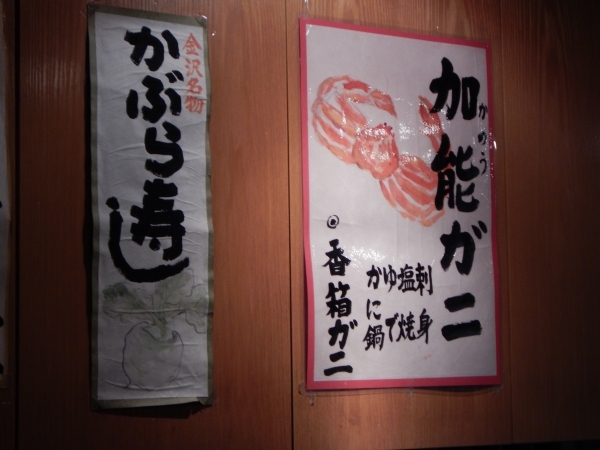 金沢名物
かぶら寿し
加能ガニ
かのう
刺身
塩焼
ゆで
かに鍋
◎香箱ガニ